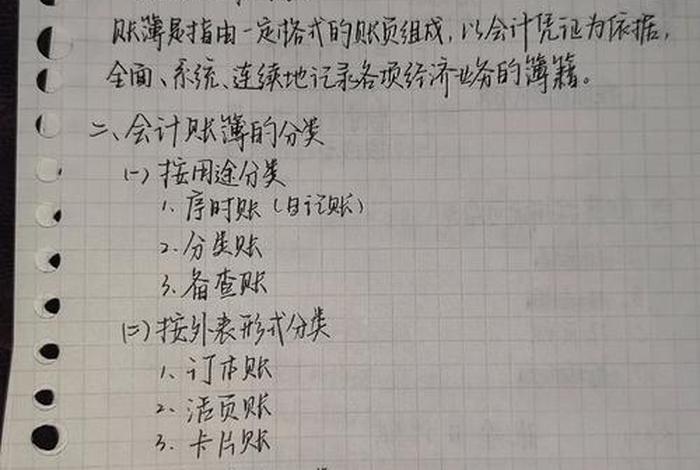 账簿是指由一定格式的账页组成，以会计凭证为依据，
全面、系统、连续地记录各项经济业务的簿籍。
二、会计账簿的分类
(一) 按用途分类
1. 序时账（日记账）
2. 分类账
3. 备查账
(二) 按外表形式分类
1. 订本账
2. 活页账
3. 卡片账